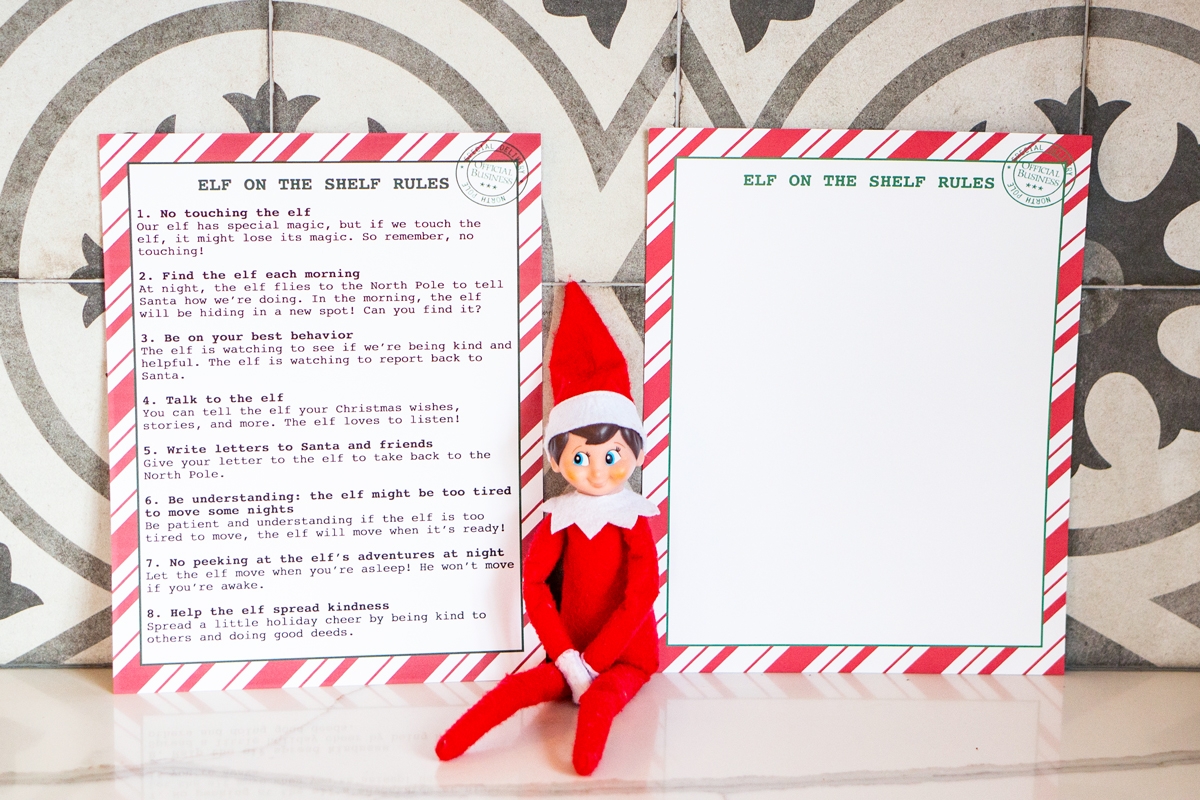 ELF ON THE SHELF RULES
SPECIAL DELIVERY
OFFICIAL
BUSINESS
NORTH POLE
1. No touching the elf
Our elf has special magic, but if we touch the
elf, it might lose its magic. So remember, no
touching!
2. Find the elf each morning
At night, the elf flies to the North Pole to tell
Santa how we're doing. In the morning, the elf
will be hiding in a new spot! Can you find it?
3. Be on your best behavior
The elf is watching to see if we're being kind and
helpful. The elf is watching to report back to
Santa.
4. Talk to the elf
You can tell the elf your Christmas wishes,
stories, and more. The elf loves to listen!
5. Write letters to Santa and friends
Give your letter to the elf to take back to the
North Pole.
6. Be understanding: the elf might be too tired
to move some nights
Be patient and understanding if the elf is too
tired to move, the elf will move when it's ready!
7. No peeking at the elf's adventures at night
Let the elf move when you're asleep! He won't move
if you're awake.
8. Help the elf spread kindness
Spread a little holiday cheer by being kind to
others and doing good deeds.
ELF ON THE SHELF RULES
SPECIAL DELIVERY
OFFICIAL
BUSINESS
NORTH POLE